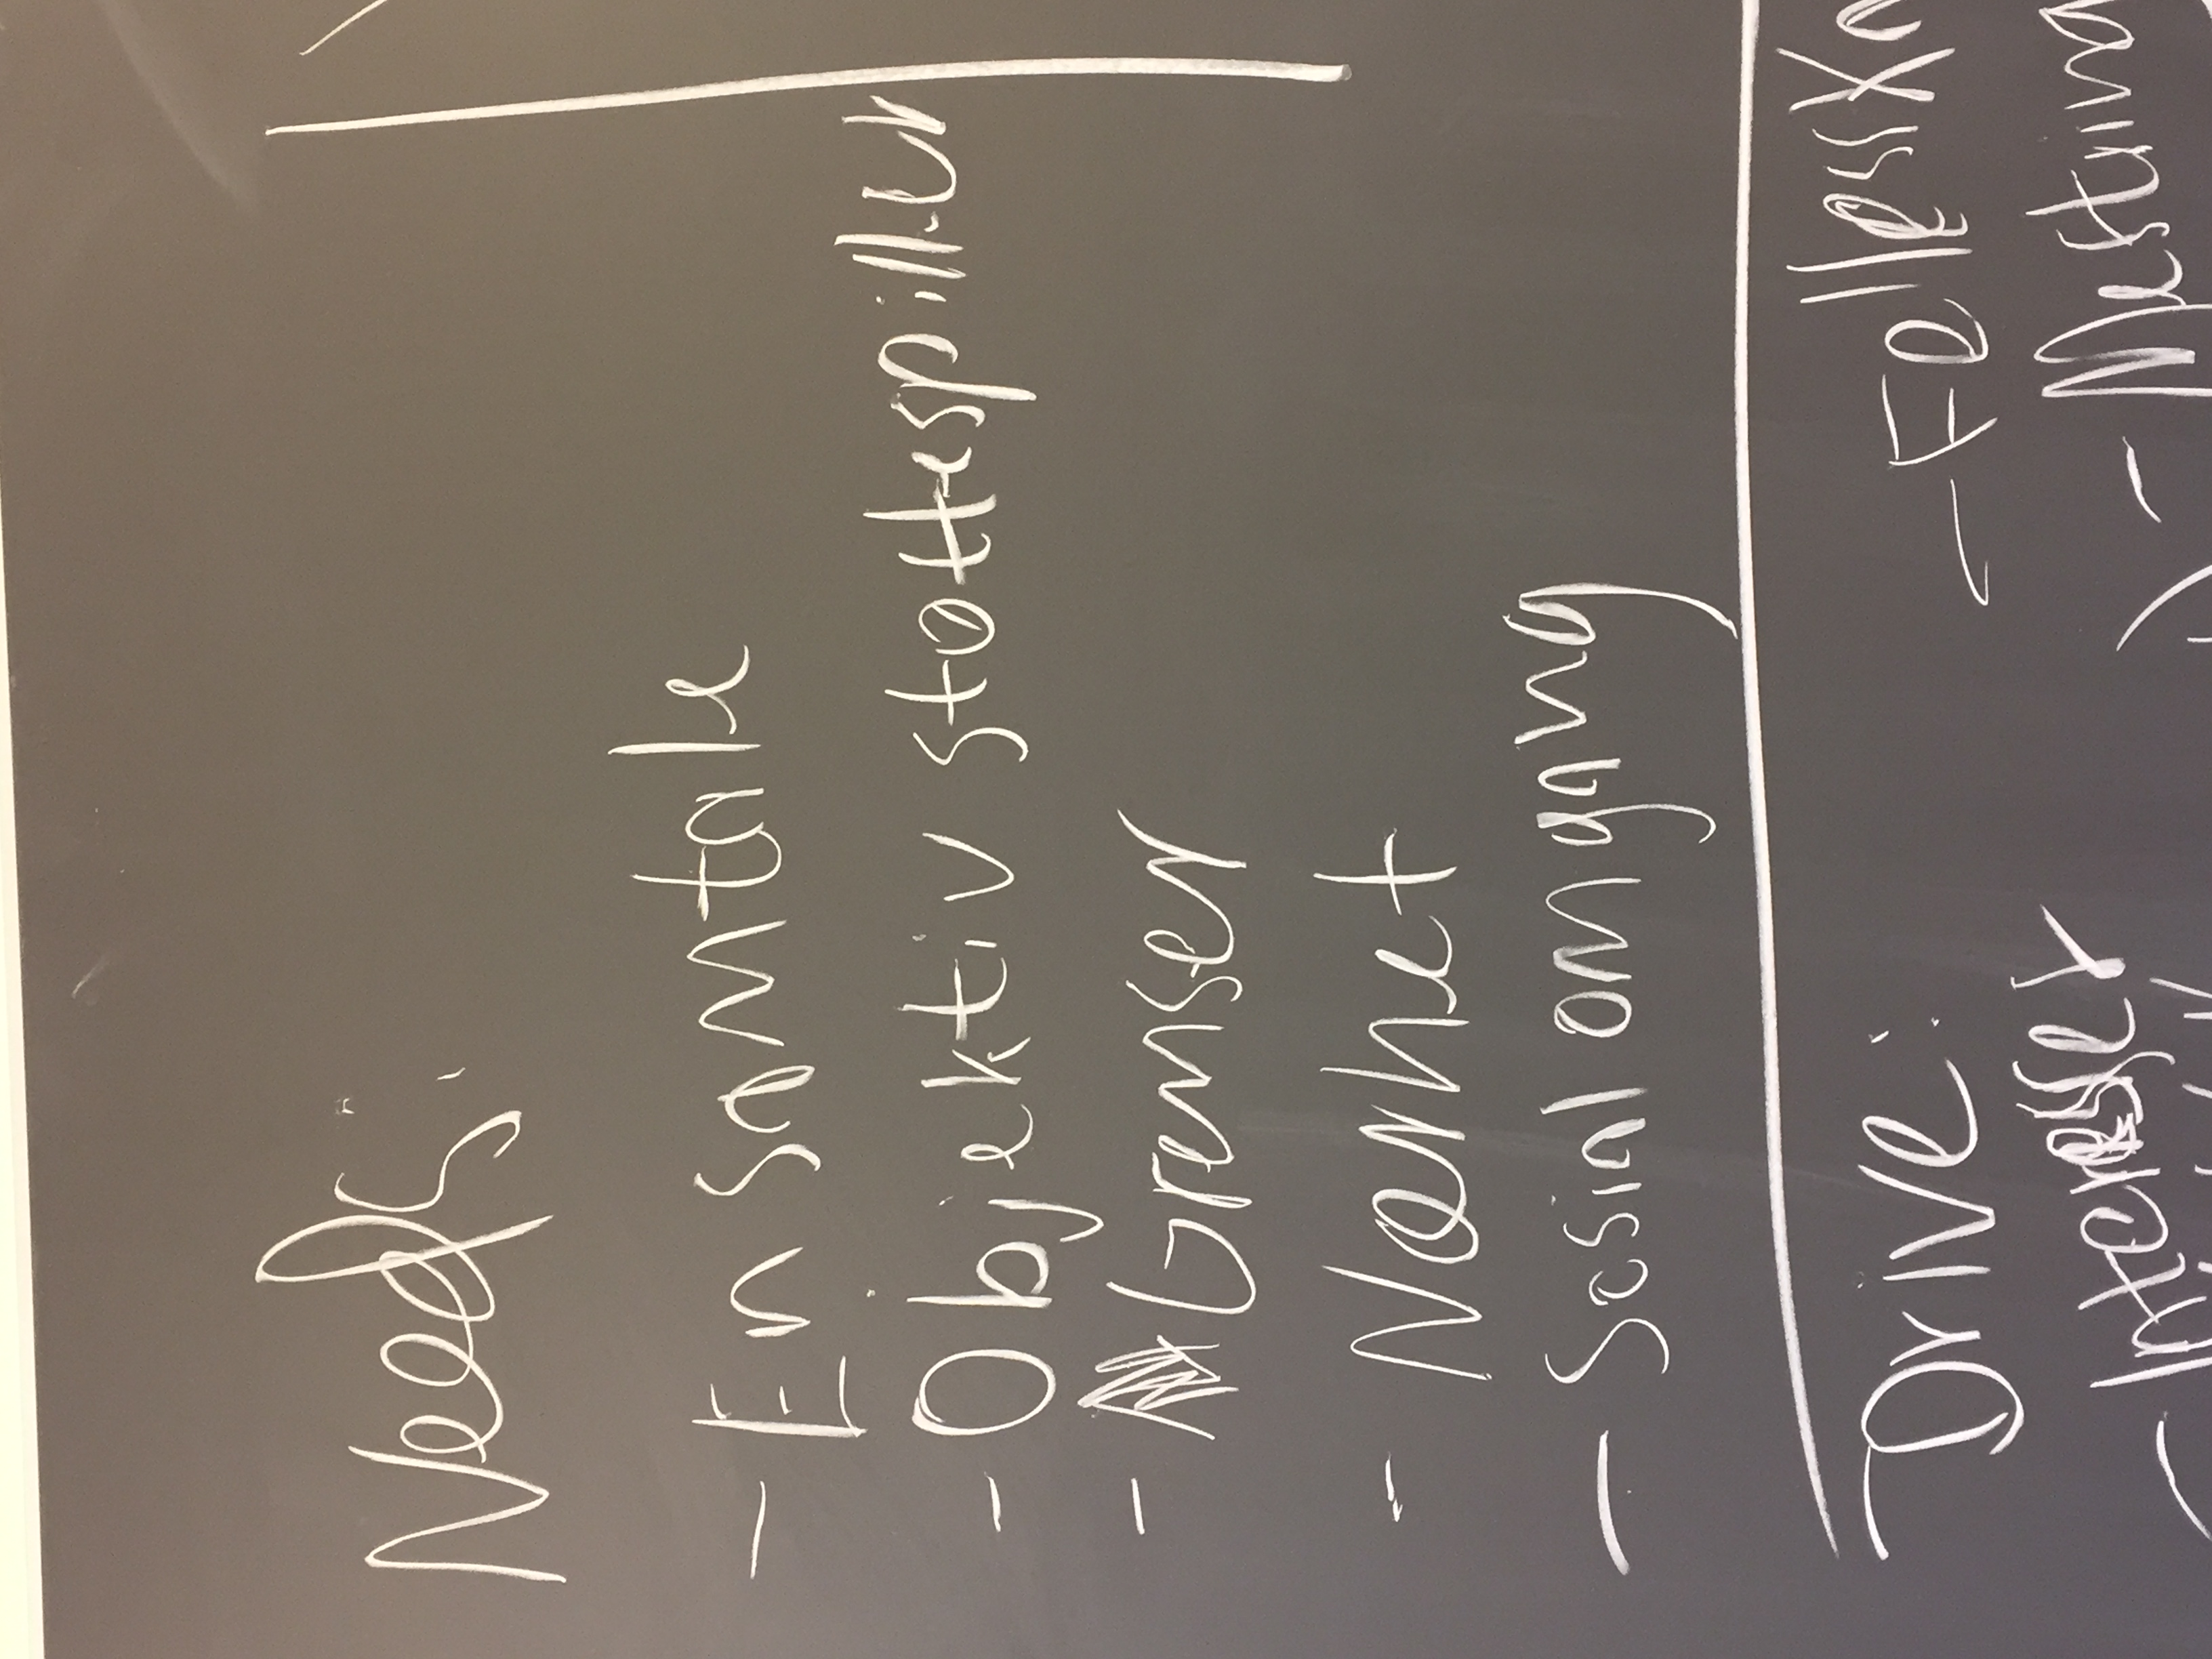 Needs:
- En samtale
- Objektiv støttespiller
- Grenser
- Nærhet
- Sosial omgang
Drive:
- Interesser
- Mestring